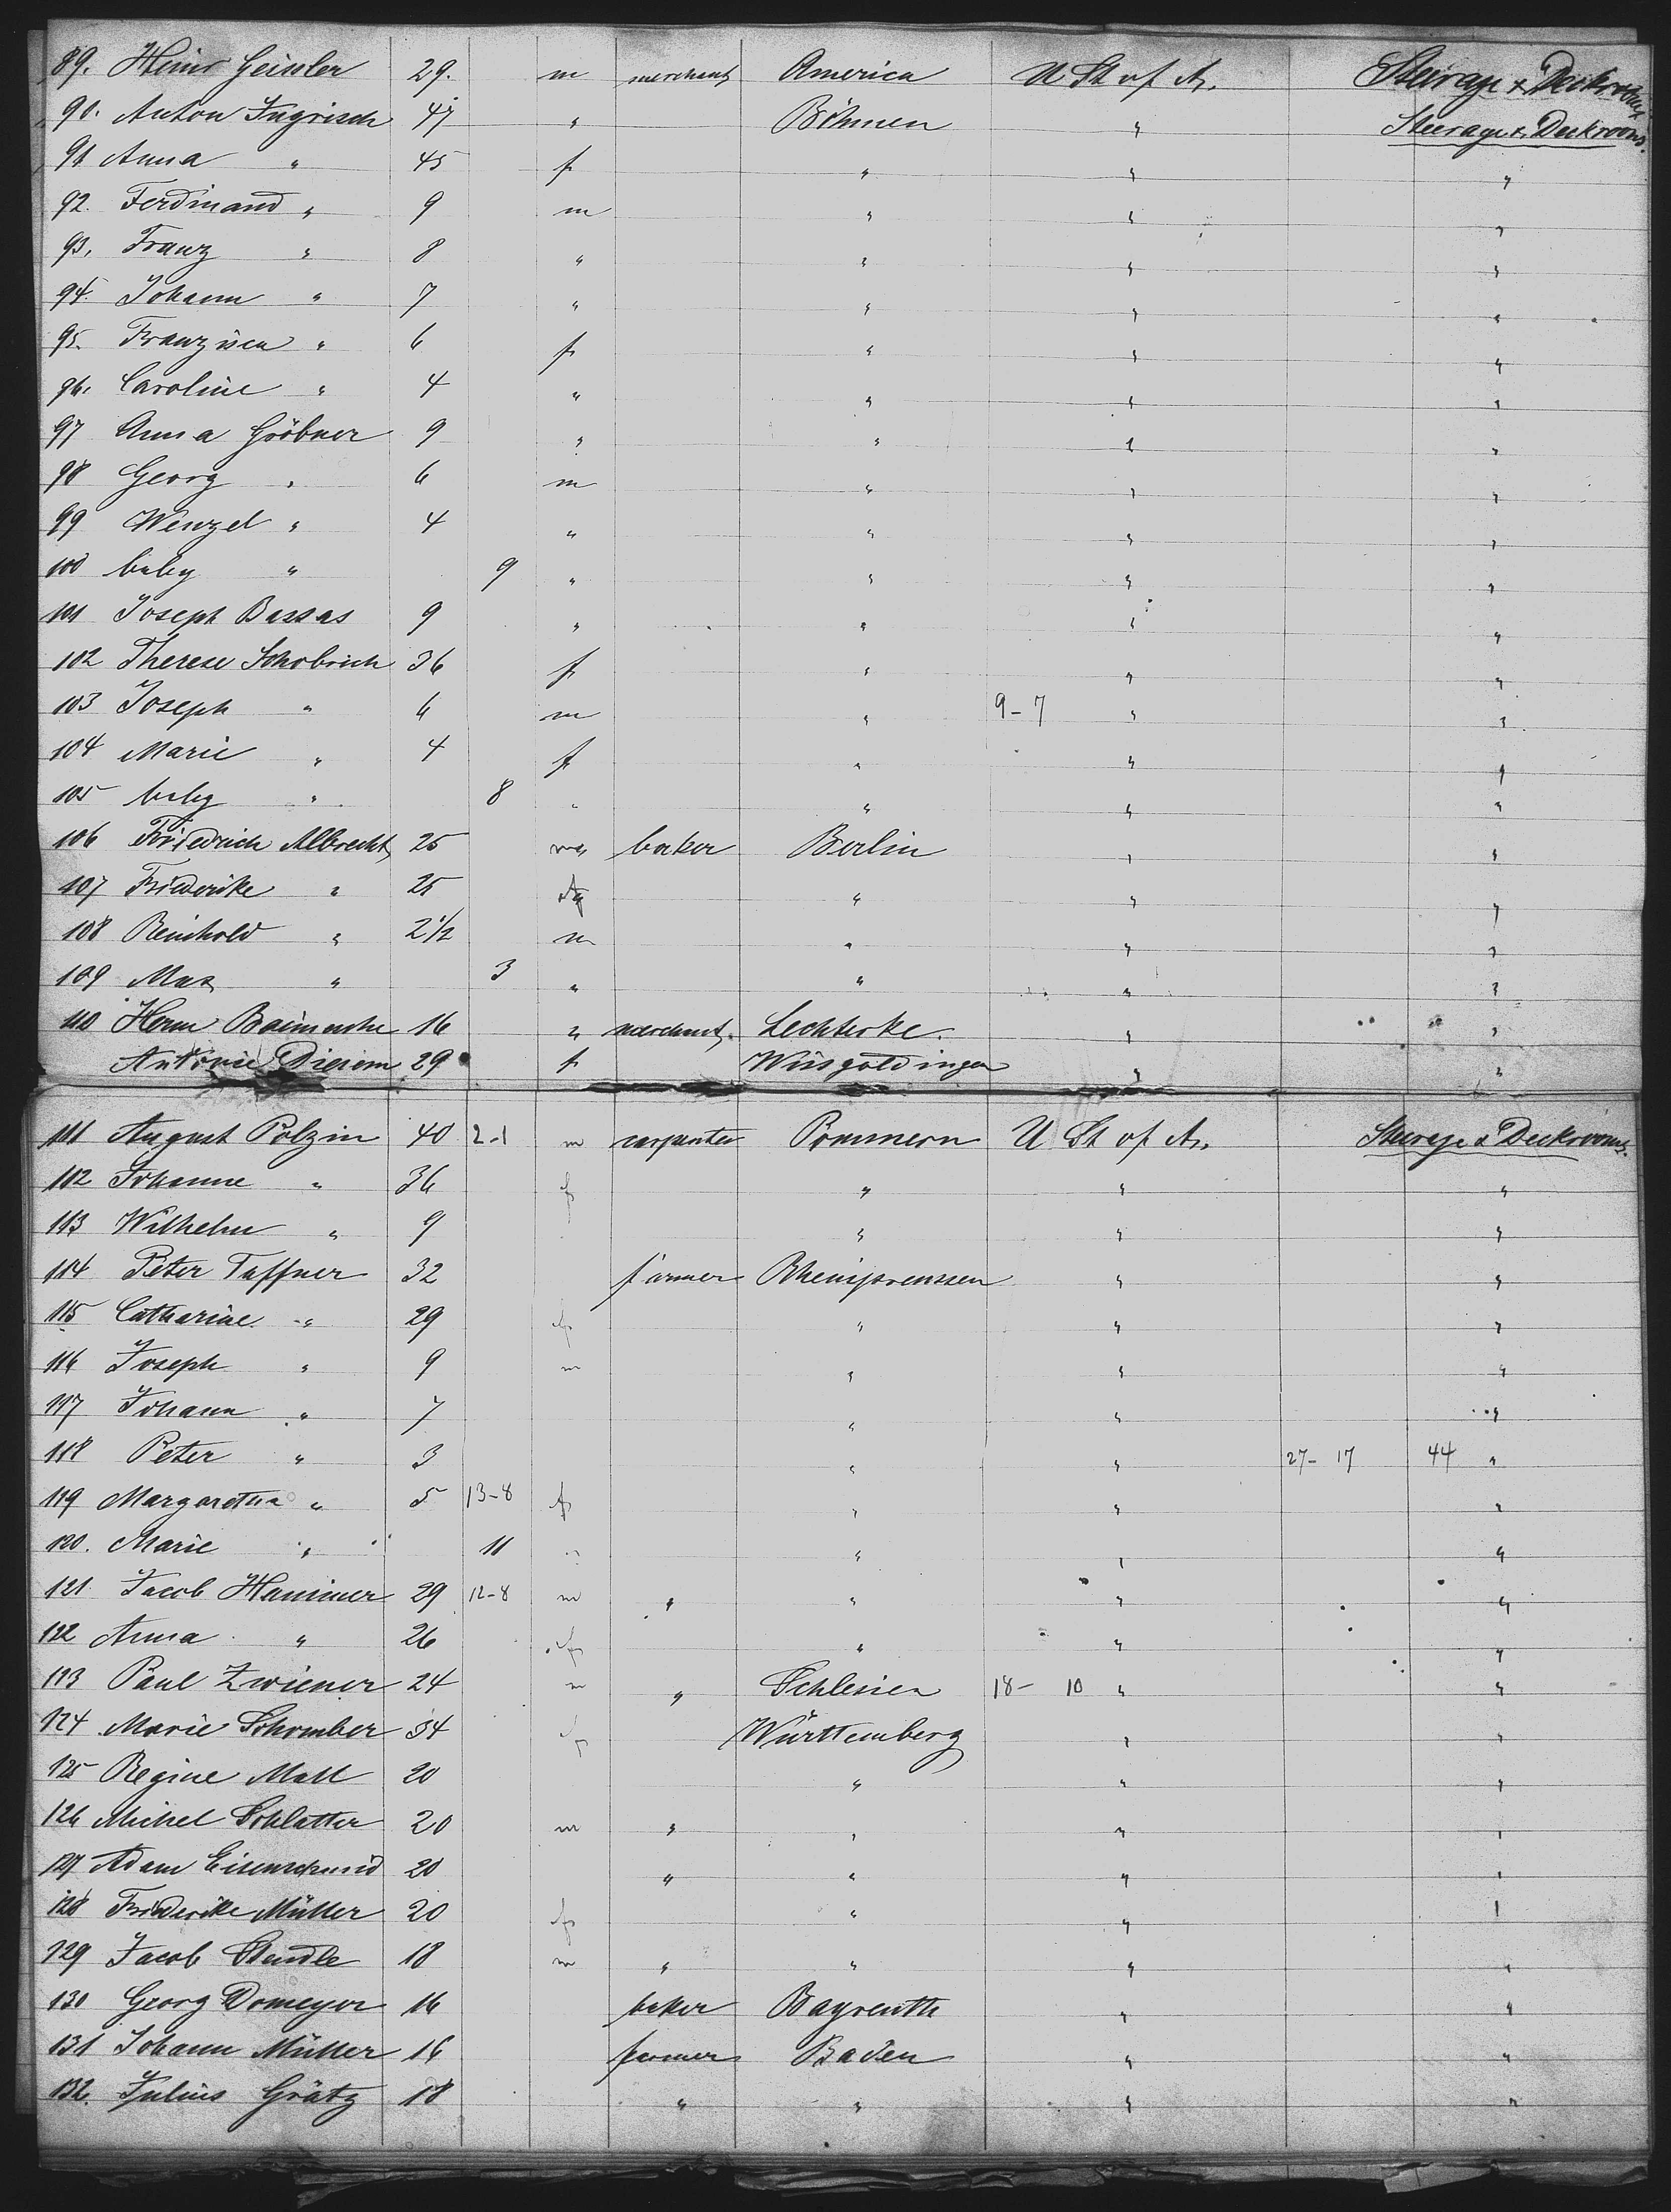 89. Heinr Geissler 29. m merchant America U St of A. Steerage & Deckrooms
90. Anton Ingrisch 47 " Böhmen " Steerage & Deckrooms.
91 Anna " 45 f " " "
92. Ferdinand " 9 m " " "
93. Franz " 8 " " " "
94. Johann " 7 " " " "
95. Franzisca " 6 f " " "
96. Caroline " 4 " " " "
97 Anna Gröbner 9 " " " "
98 Georg " 6 m " " "
99 Wenzel " 4 " " " "
100 baby " 9 " " " "
101 Joseph Bassas 9 " " " "
102 Therese Schobrich 36 f " " "
103 Joseph " 6 m " 9-7 " "
104 Marie " 4 f " " "
105 baby " 8 " " " "
106 Friedrich Albrecht 25 m baker Berlin " "
107 Friederike " 25 f " " "
108 Reinhold " 2 1/2 m " " "
109 Max " 3 " " " "
110 Herm 16 " merchant. Lechterke. " "
Antonie Diesem 29 f Wissgoldingen " "
111 August Polzin 40 2-1 m carpenter Pommern U St of A. Steerage & Deckrooms.
112 Johanne " 36 f " " "
113 Wilhelm " 9 " " "
114 Peter Taffner 32 farmer Rheinpreussen " "
115 Catharine " 29 f " " "
116 Joseph " 9 m " " "
117 Johann " 7 " " "
118 Peter " 3 " " 27- 17 44 "
119 Margaretha " 5 13-8 f " " "
120. Marie " 11 " " " "
121. Jacob Hammer 29 12-8 m " " " "
122 Anna " 26 f " " "
113 Paul Zwiener 24 m " Schlesien 18- 10 " "
124 Marie Schomber 34 f Württemberg " "
125 Regine Mall 20 " " "
126 Michel Schlatter 20 m " " " "
127 Adam Eisenschmid 20 " " " "
128 Friederike Müller 20 f " " "
129 Jacob Staudle 18 m " " " "
130 Georg Domeyer 16 baker Bayreuth " "
131 Johann Müller 16 farmer Baden " "
132. Julius Grätz 18 " " " "